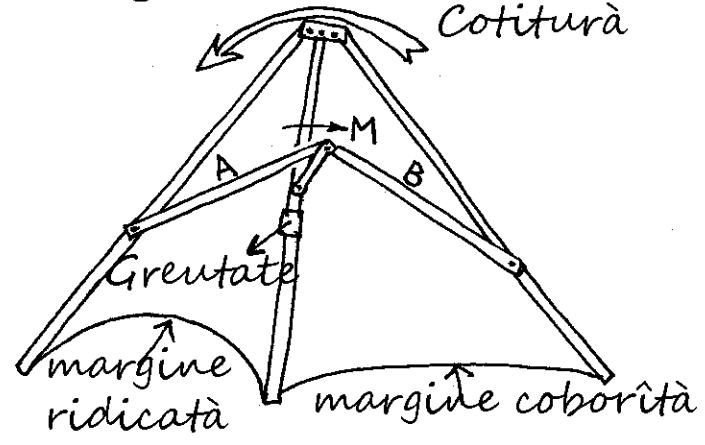 Cotiturà
M
A
B
Greutate
margine
ridicatà
margine coborîtà